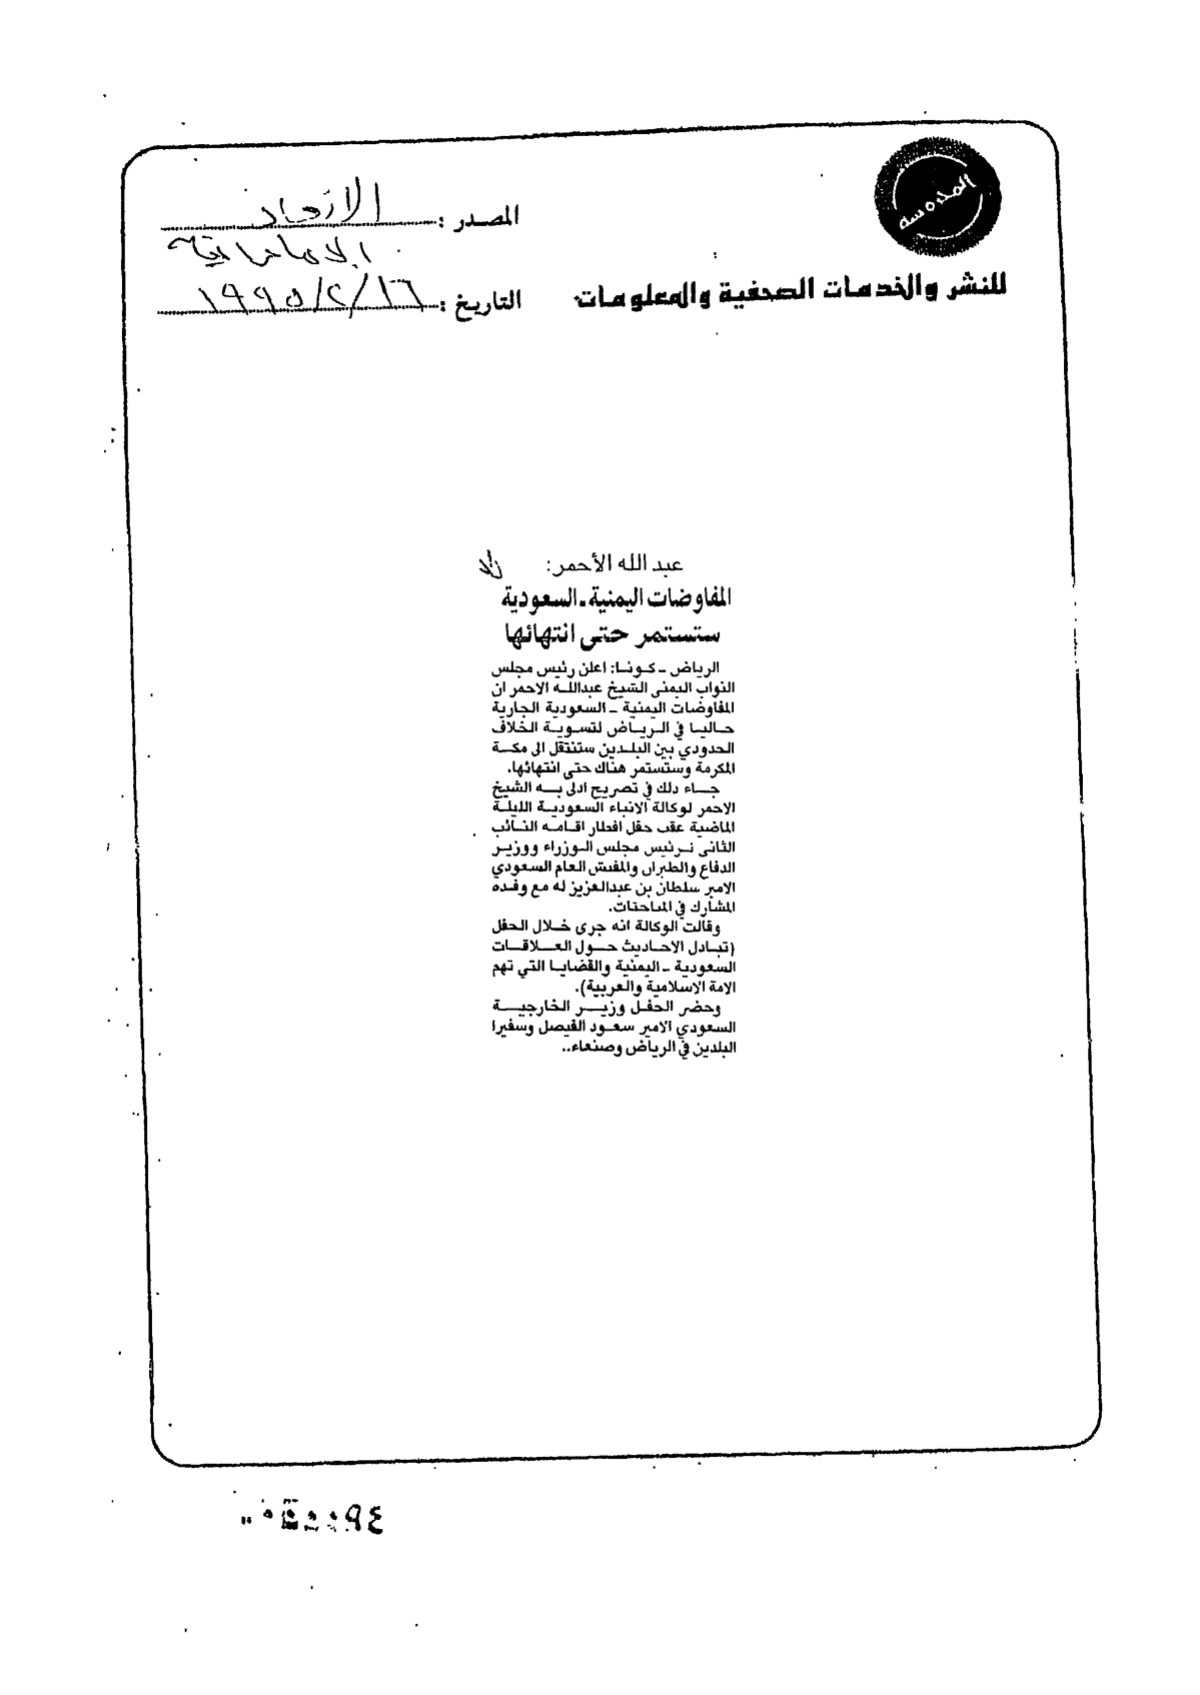 المصدر : الاتحاد
الاماراتية
للنشر والخدمات الصحفية والمعلومات
التاريخ : ١٩٩٥/٢/١٦
عبد الله الأحمر:
المفاوضات اليمنية ـ السعودية
ستستمر حتى انتهائها
الرياض ـ كونا: اعلن رئيس مجلس
النواب اليمنى الشيخ عبدالله الاحمر ان
المفاوضات اليمنية ـ السعودية الجارية
حاليا في الرياض لتسوية الخلاف
الحدودي بين البلدين ستنتقل الى مكة
المكرمة وستستمر هناك حتى انتهائها.
جاء ذلك في تصريح ادلى به الشيخ
الاحمر لوكالة الانباء السعودية الليلة
الماضية عقب حفل افطار اقامه النائب
الثانى لرئيس مجلس الوزراء ووزير
الدفاع والطيران والمفتش العام السعودي
الامير سلطان بن عبدالعزيز له مع وفده
المشارك في المباحثات.
وقالت الوكالة انه جرى خلال الحفل
(تبادل الاحاديث حول العلاقات
السعودية ـ اليمنية والقضايا التي تهم
الامة الاسلامية والعربية).
وحضر الحفل وزير الخارجية
السعودي الامير سعود الفيصل وسفيرا
البلدين في الرياض وصنعاء..